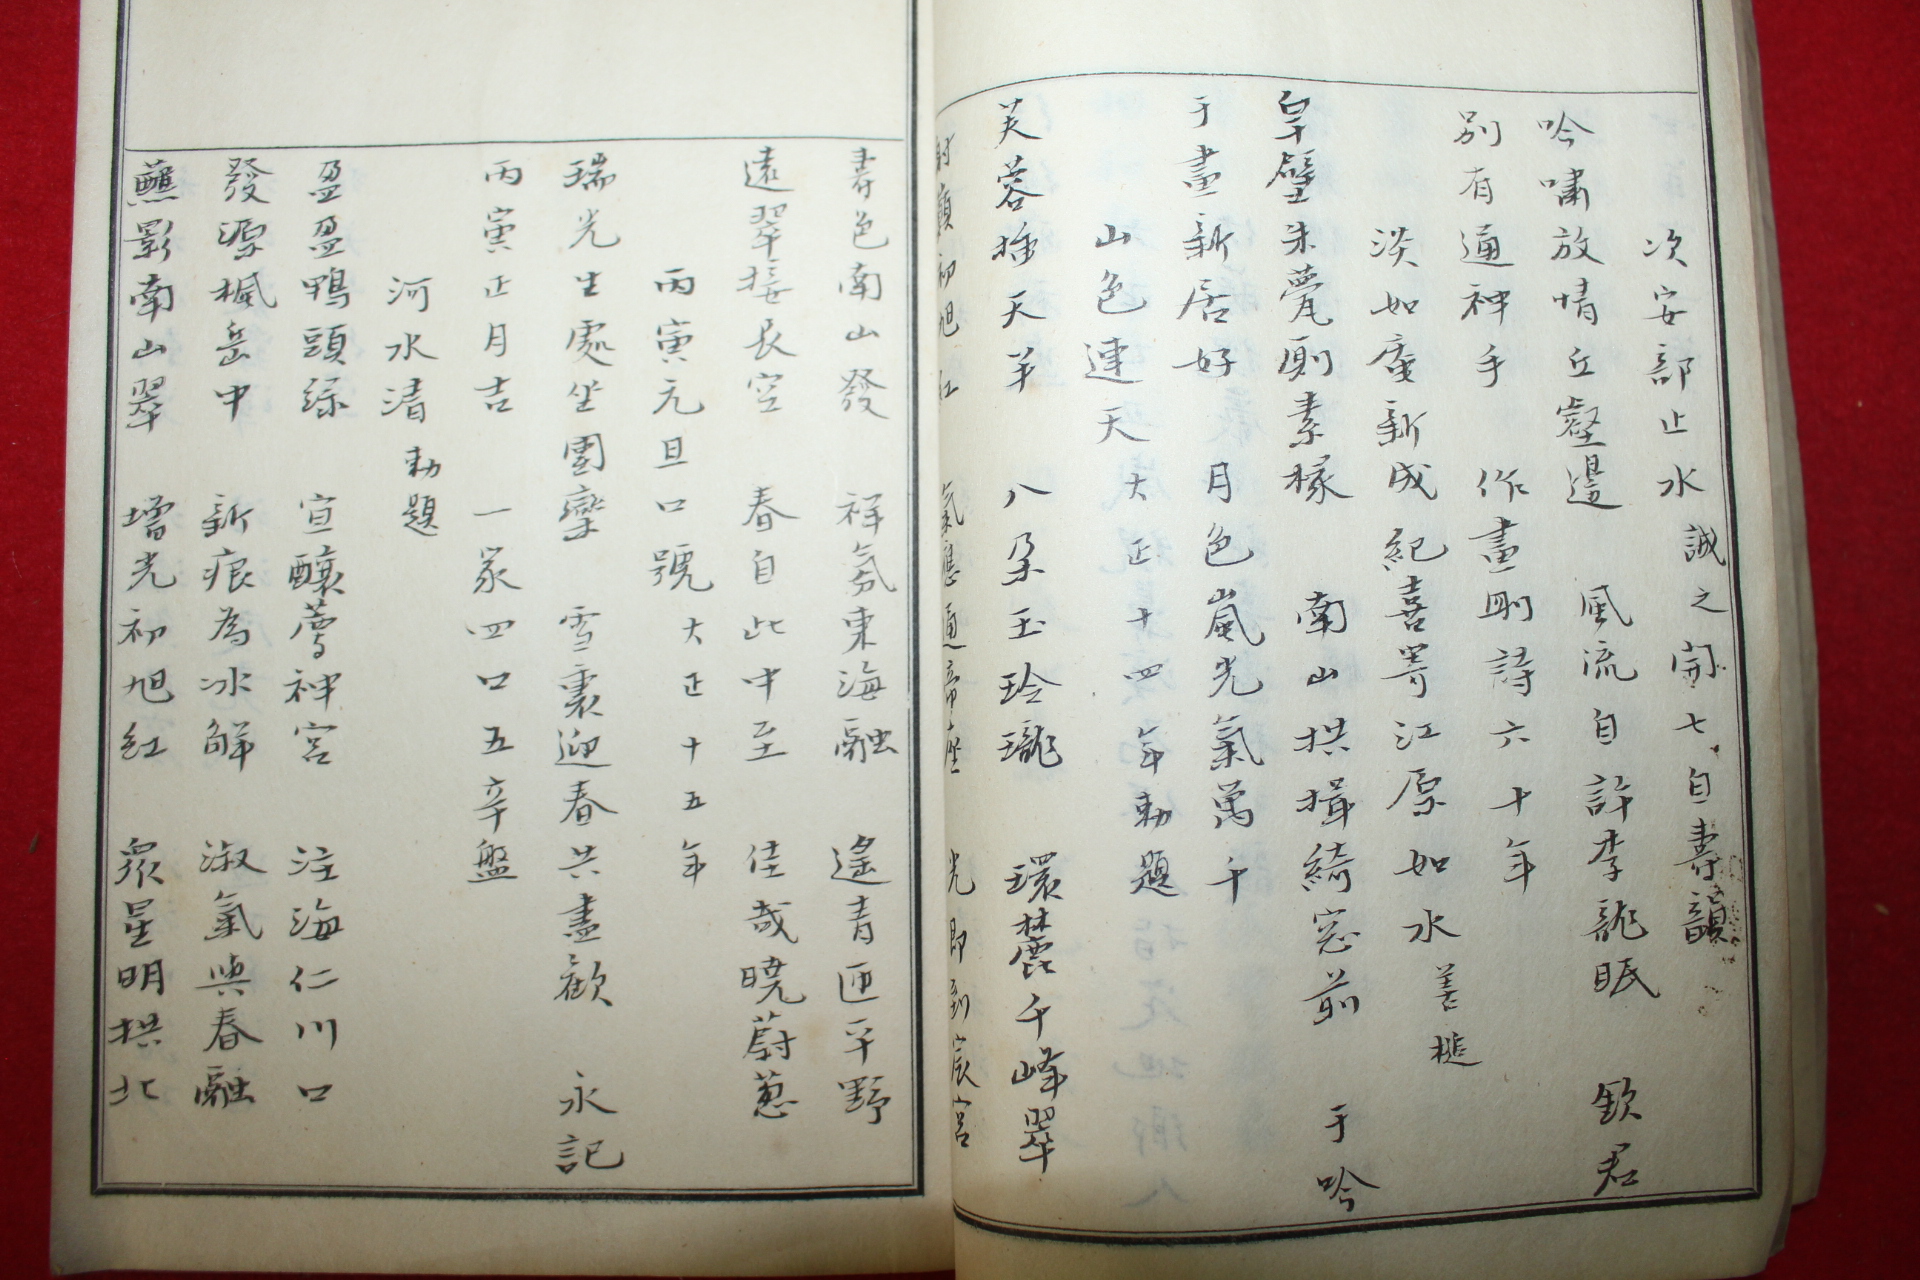 次安部止水誠之開七自壽韻
吟嘯放情丘壑邊　風流自許李龍眠　欽君
別有通神手　作畫剛詩六十年
淡如庵新成紀喜寄江原如水善槌
皁壁朱甍廁素椽　南山拱揖綺窓前　于吟
于畫新居好　月色嵐光氣萬千
山色連天大正十四年勅題
芙蓉揷天半　八朶玉玲瓏　環麓千峰翠
射顚初旭紅　氣應通帝座　光即到宸宮
壽色南山發　祥氛東海融　遙靑匝平野
遠翠接長空　春自此中至　佳哉曉蔚蔥
丙寅元旦口號大正十五年
瑞光生處坐團欒　雪裏迎春共盡歡　永記
丙寅正月吉　一家四口五辛盤
河水清勅題
盈盈鴨頭綠　宣釀薦神宮　注海仁川口
發源楓岳中　新痕為冰解　淑氣與春融
蘸影南山翠　增光初旭紅　衆星明拱北